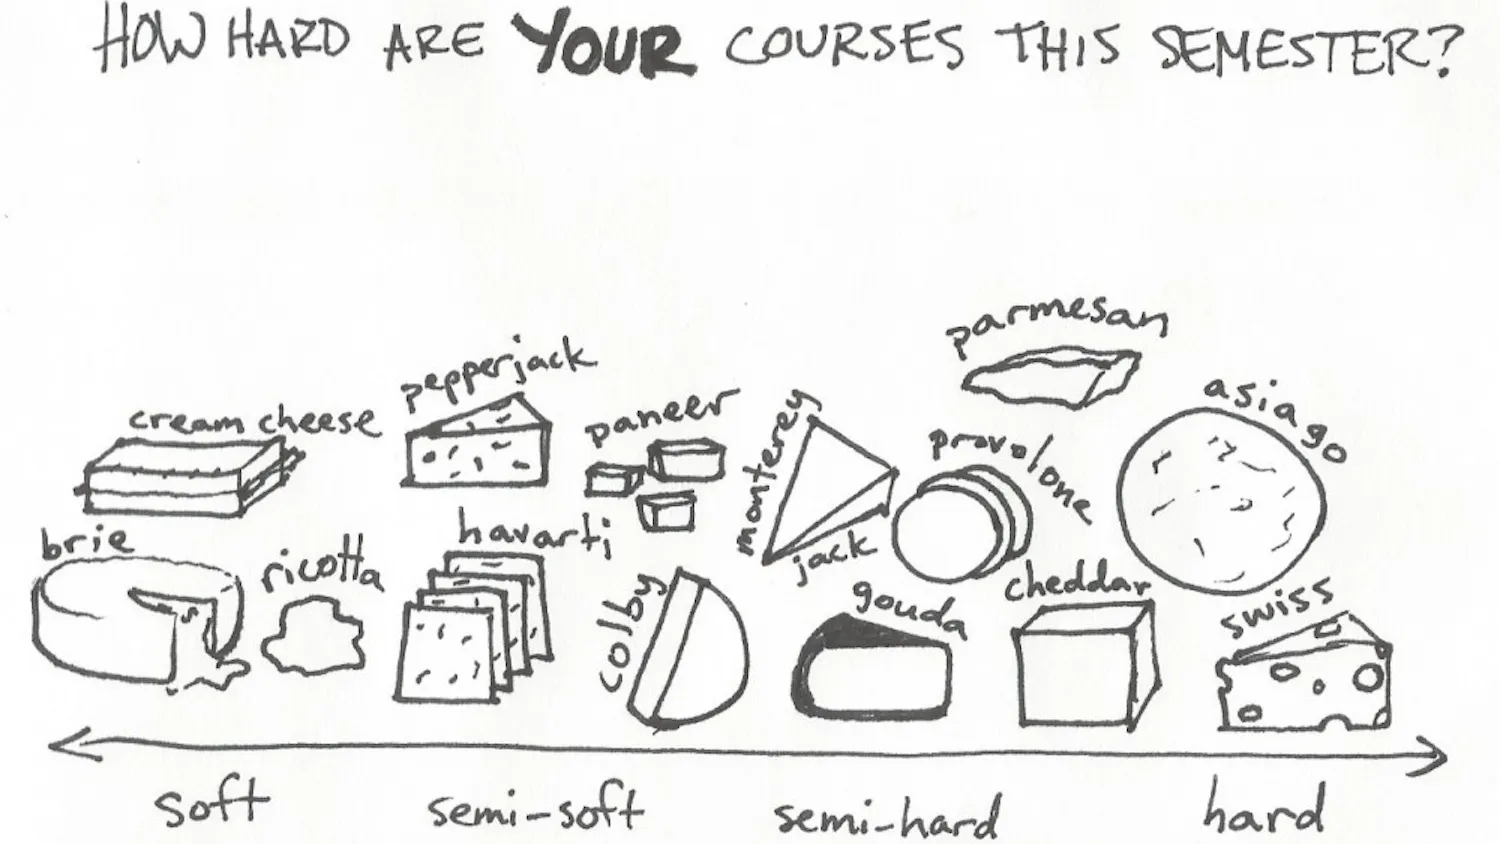 HOW HARD ARE YOUR COURSES THIS SEMESTER?
parmesan
pepperjack
asiago
cream cheese
paneer
monterey
jack
provolone
brie
ricotta
havarti
colby
gouda
cheddar
swiss
soft
semi-soft
semi-hard
hard